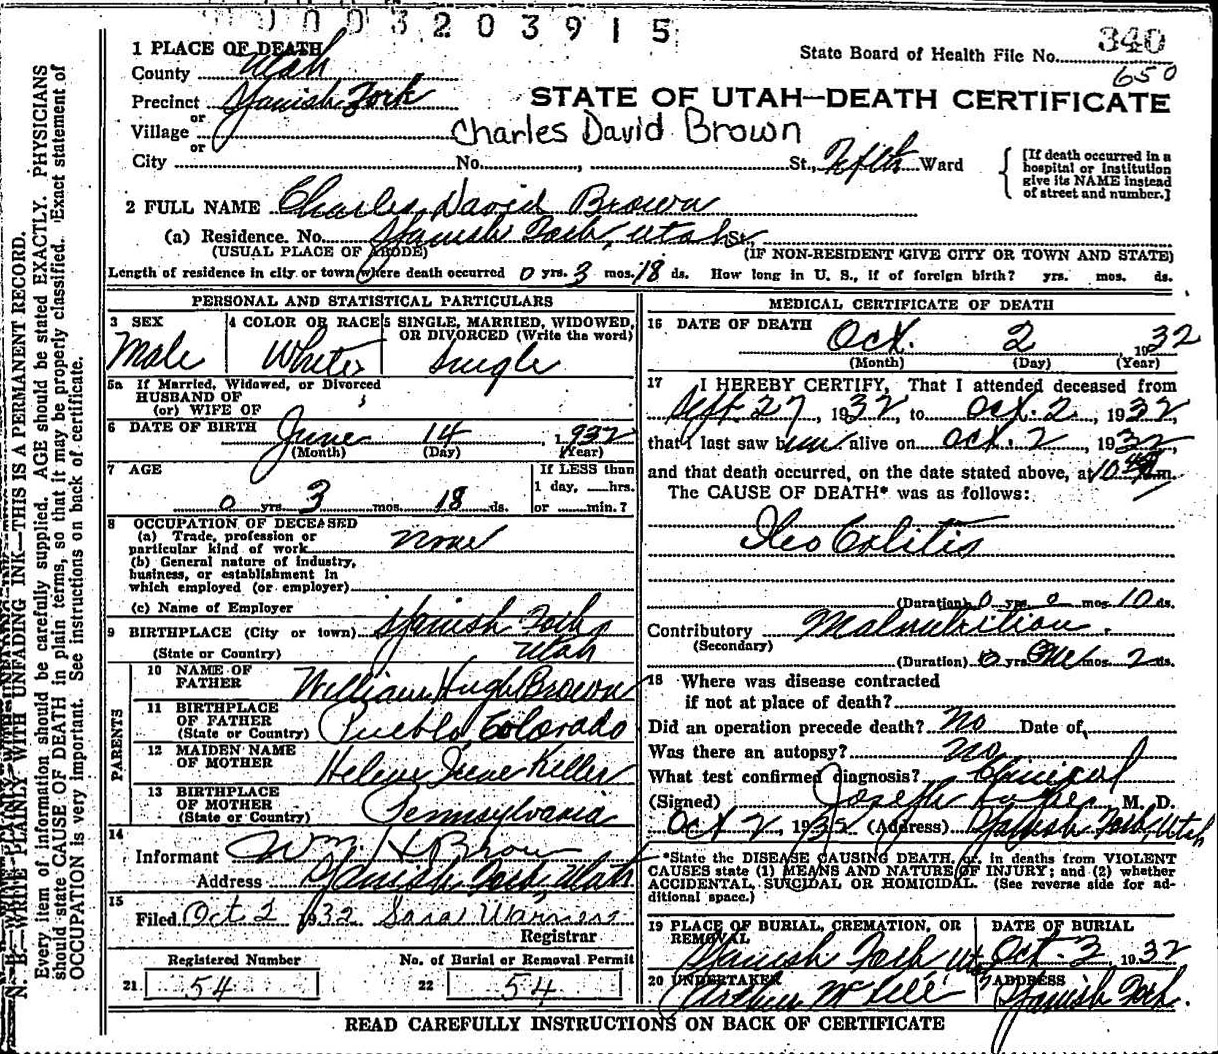 0003203915
340
State Board of Health File No.
650
1 PLACE OF DEATH
County Utah
Precinct Spanish Fork
or
Village
or
City No. , St., Fifth Ward
STATE OF UTAH—DEATH CERTIFICATE
Charles David Brown
[If death occurred in a
hospital or institution
give its NAME instead
of street and number.]
2 FULL NAME Charles David Brown
(a) Residence. No. Spanish Fork, Utah St.,
(USUAL PLACE OF ABODE) (IF NON-RESIDENT GIVE CITY OR TOWN AND STATE)
Length of residence in city or town where death occurred 0 yrs. 3 mos. 18 ds. How long in U. S., if of foreign birth? yrs. mos. ds.
PERSONAL AND STATISTICAL PARTICULARS
3 SEX
Male
4 COLOR OR RACE
White
5 SINGLE, MARRIED, WIDOWED,
OR DIVORCED (Write the word)
Single
5a If Married, Widowed, or Divorced
HUSBAND OF
(or) WIFE OF
6 DATE OF BIRTH June 14, 1932
(Month) (Day) (Year)
7 AGE
0 yrs. 3 mos. 18 ds.
If LESS than
1 day, hrs.
or min.?
8 OCCUPATION OF DECEASED
(a) Trade, profession or
particular kind of work none
(b) General nature of industry,
business, or establishment in
which employed (or employer)
(c) Name of Employer
9 BIRTHPLACE (City or town) Spanish Fork
(State or Country) Utah
PARENTS
10 NAME OF
FATHER William Hugh Brown
11 BIRTHPLACE
OF FATHER
(State or Country) Pueblo, Colorado
12 MAIDEN NAME
OF MOTHER Helene Irene Keller
13 BIRTHPLACE
OF MOTHER
(State or Country) Pennsylvania
14
Informant Wm H Brown
Address Spanish Fork, Utah
15
Filed Oct 2 1932
Registrar
Registered Number
21 54
No. of Burial or Removal Permit
22 54
MEDICAL CERTIFICATE OF DEATH
16 DATE OF DEATH Oct. 2, 1932
(Month) (Day) (Year)
17 I HEREBY CERTIFY, That I attended deceased from
Sept. 27, 1932, to Oct. 2, 1932,
that I last saw him alive on Oct. 2, 1932,
and that death occurred, on the date stated above, at m.
The CAUSE OF DEATH* was as follows:
Ileo Colitis
(Duration) 0 yrs. 0 mos. 10 ds.
Contributory Malnutrition.
(Secondary)
(Duration) 0 yrs. One mos. 2 ds.
18 Where was disease contracted
if not at place of death?
Did an operation precede death? No Date of
Was there an autopsy? no
What test confirmed diagnosis? Clinical
(Signed) Joseph M. D.
Oct 2, (Address) Spanish Fork, Utah
*State the DISEASE CAUSING DEATH, or, in deaths from VIOLENT
CAUSES state (1) MEANS AND NATURE OF INJURY; and (2) whether
ACCIDENTAL, SUICIDAL OR HOMICIDAL. (See reverse side for ad-
ditional space.)
19 PLACE OF BURIAL, CREMATION, OR
REMOVAL
Spanish Fork, Utah
DATE OF BURIAL
Oct. 3, 1932
20 UNDERTAKER
ADDRESS
Spanish Fork.
READ CAREFULLY INSTRUCTIONS ON BACK OF CERTIFICATE
N. B.—WRITE PLAINLY WITH UNFADING INK—THIS IS A PERMANENT RECORD.
Every item of information should be carefully supplied. AGE should be stated EXACTLY. PHYSICIANS
should state CAUSE OF DEATH in plain terms, so that it may be properly classified. Exact statement of
OCCUPATION is very important. See instructions on back of certificate.